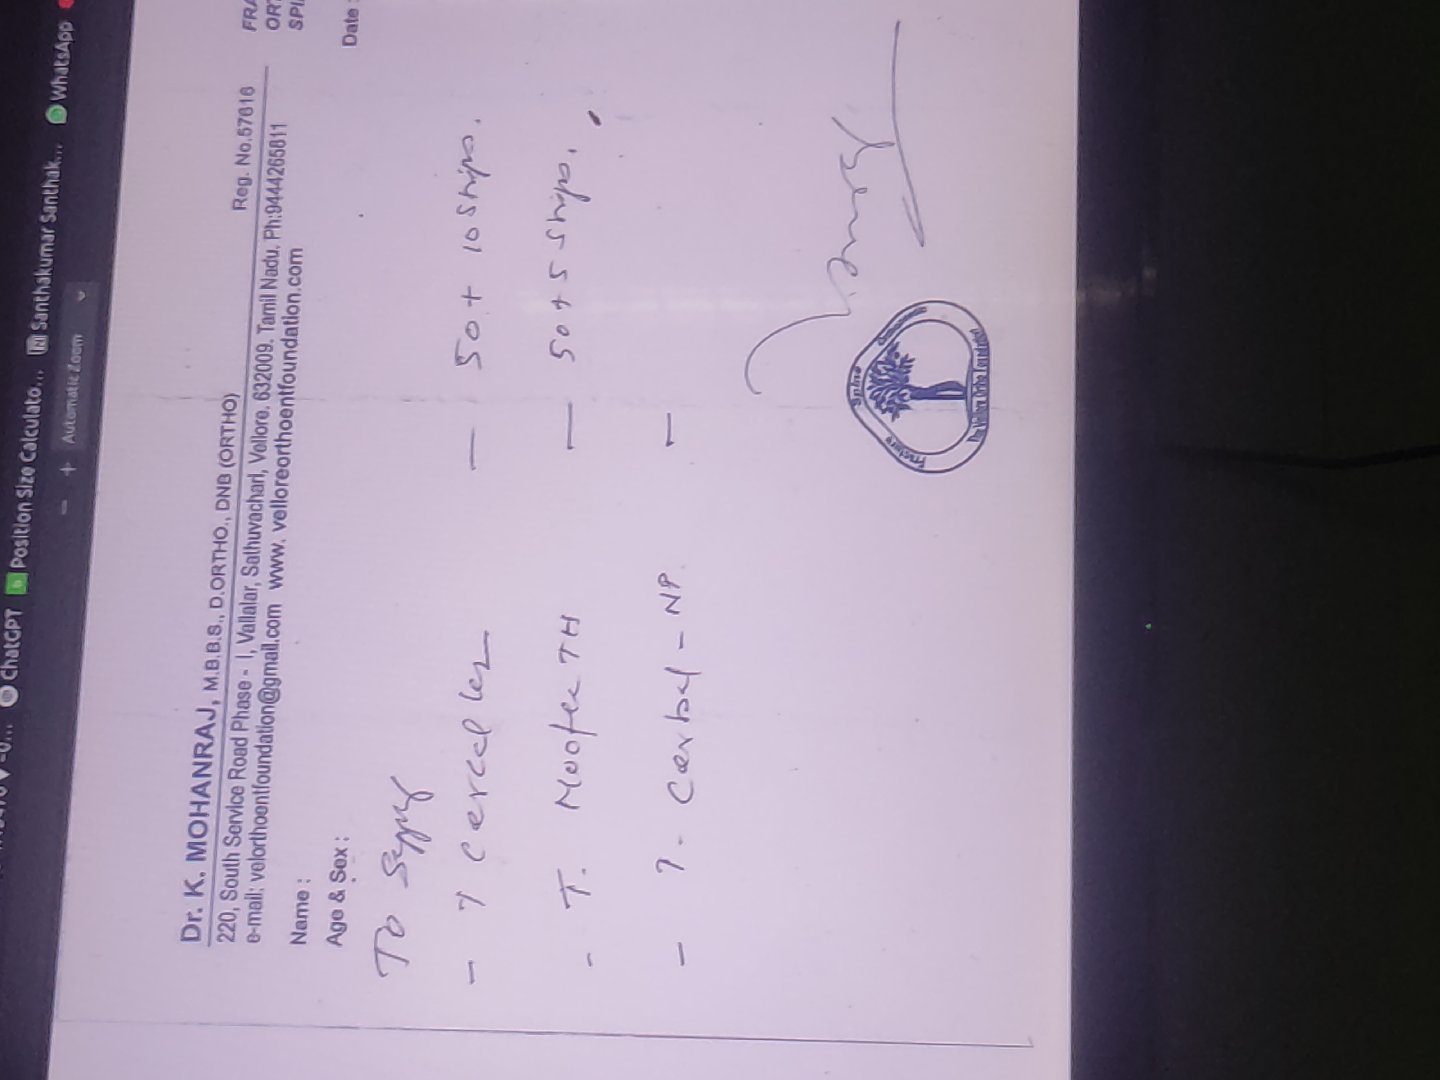 ChatGPT Position Size Calculato... Santhakumar Santhak... WhatsApp
− + Automatic Zoom
Dr. K. MOHANRAJ, M.B.B.S., D.ORTHO., DNB (ORTHO)
Reg. No.57616
220, South Service Road Phase - I, Vallalar, Sathuvachari, Vellore. 632009. Tamil Nadu. Ph:9444265811
e-mail: velorthoentfoundation@gmail.com www. velloreorthoentfoundation.com
FRA
ORT
SPI
Name :
Age & Sex :
Date :
To
- — 50 + 10 Strips.
- T. TH — 50 + 5 Strips.
- T. - NP —
Fracture Spine
The Vellore Ortho Foundation